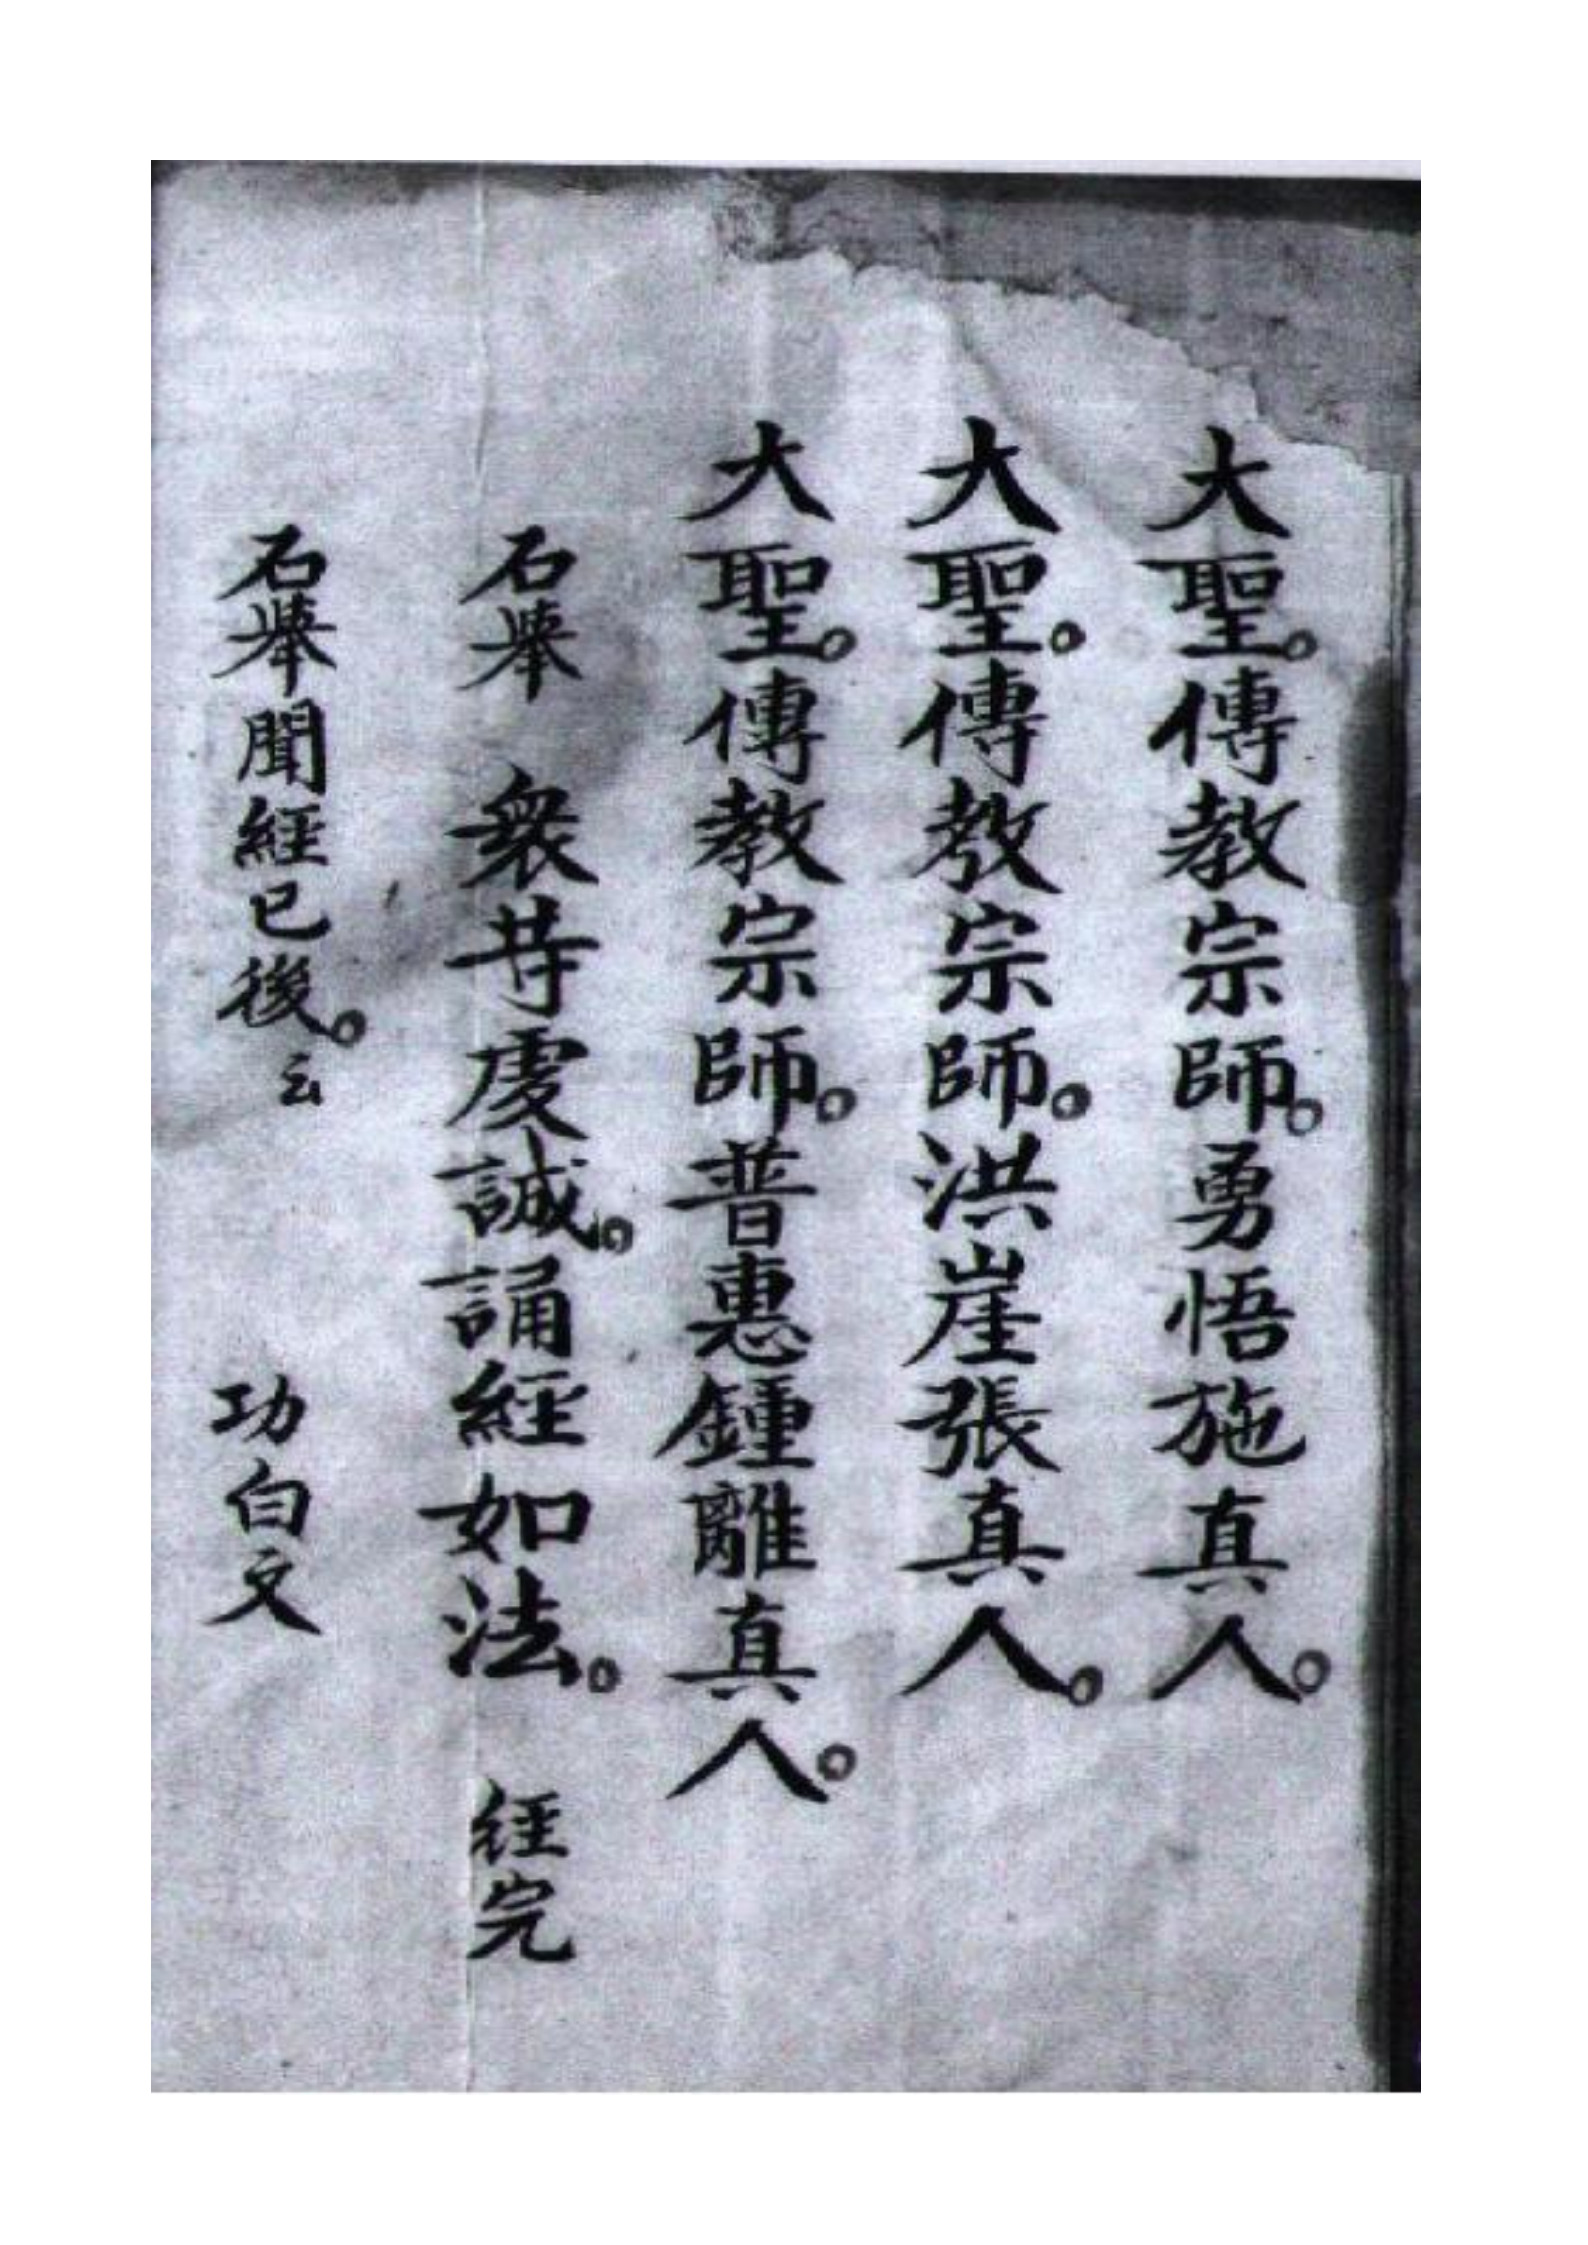 大聖。傳教宗師。勇悟施真人。
大聖。傳教宗師。洪崖張真人。
大聖。傳教宗師。普惠鍾離真人。
石舉 衆等虔誠。誦經如法。 經完
石舉聞經已後。云 功白文